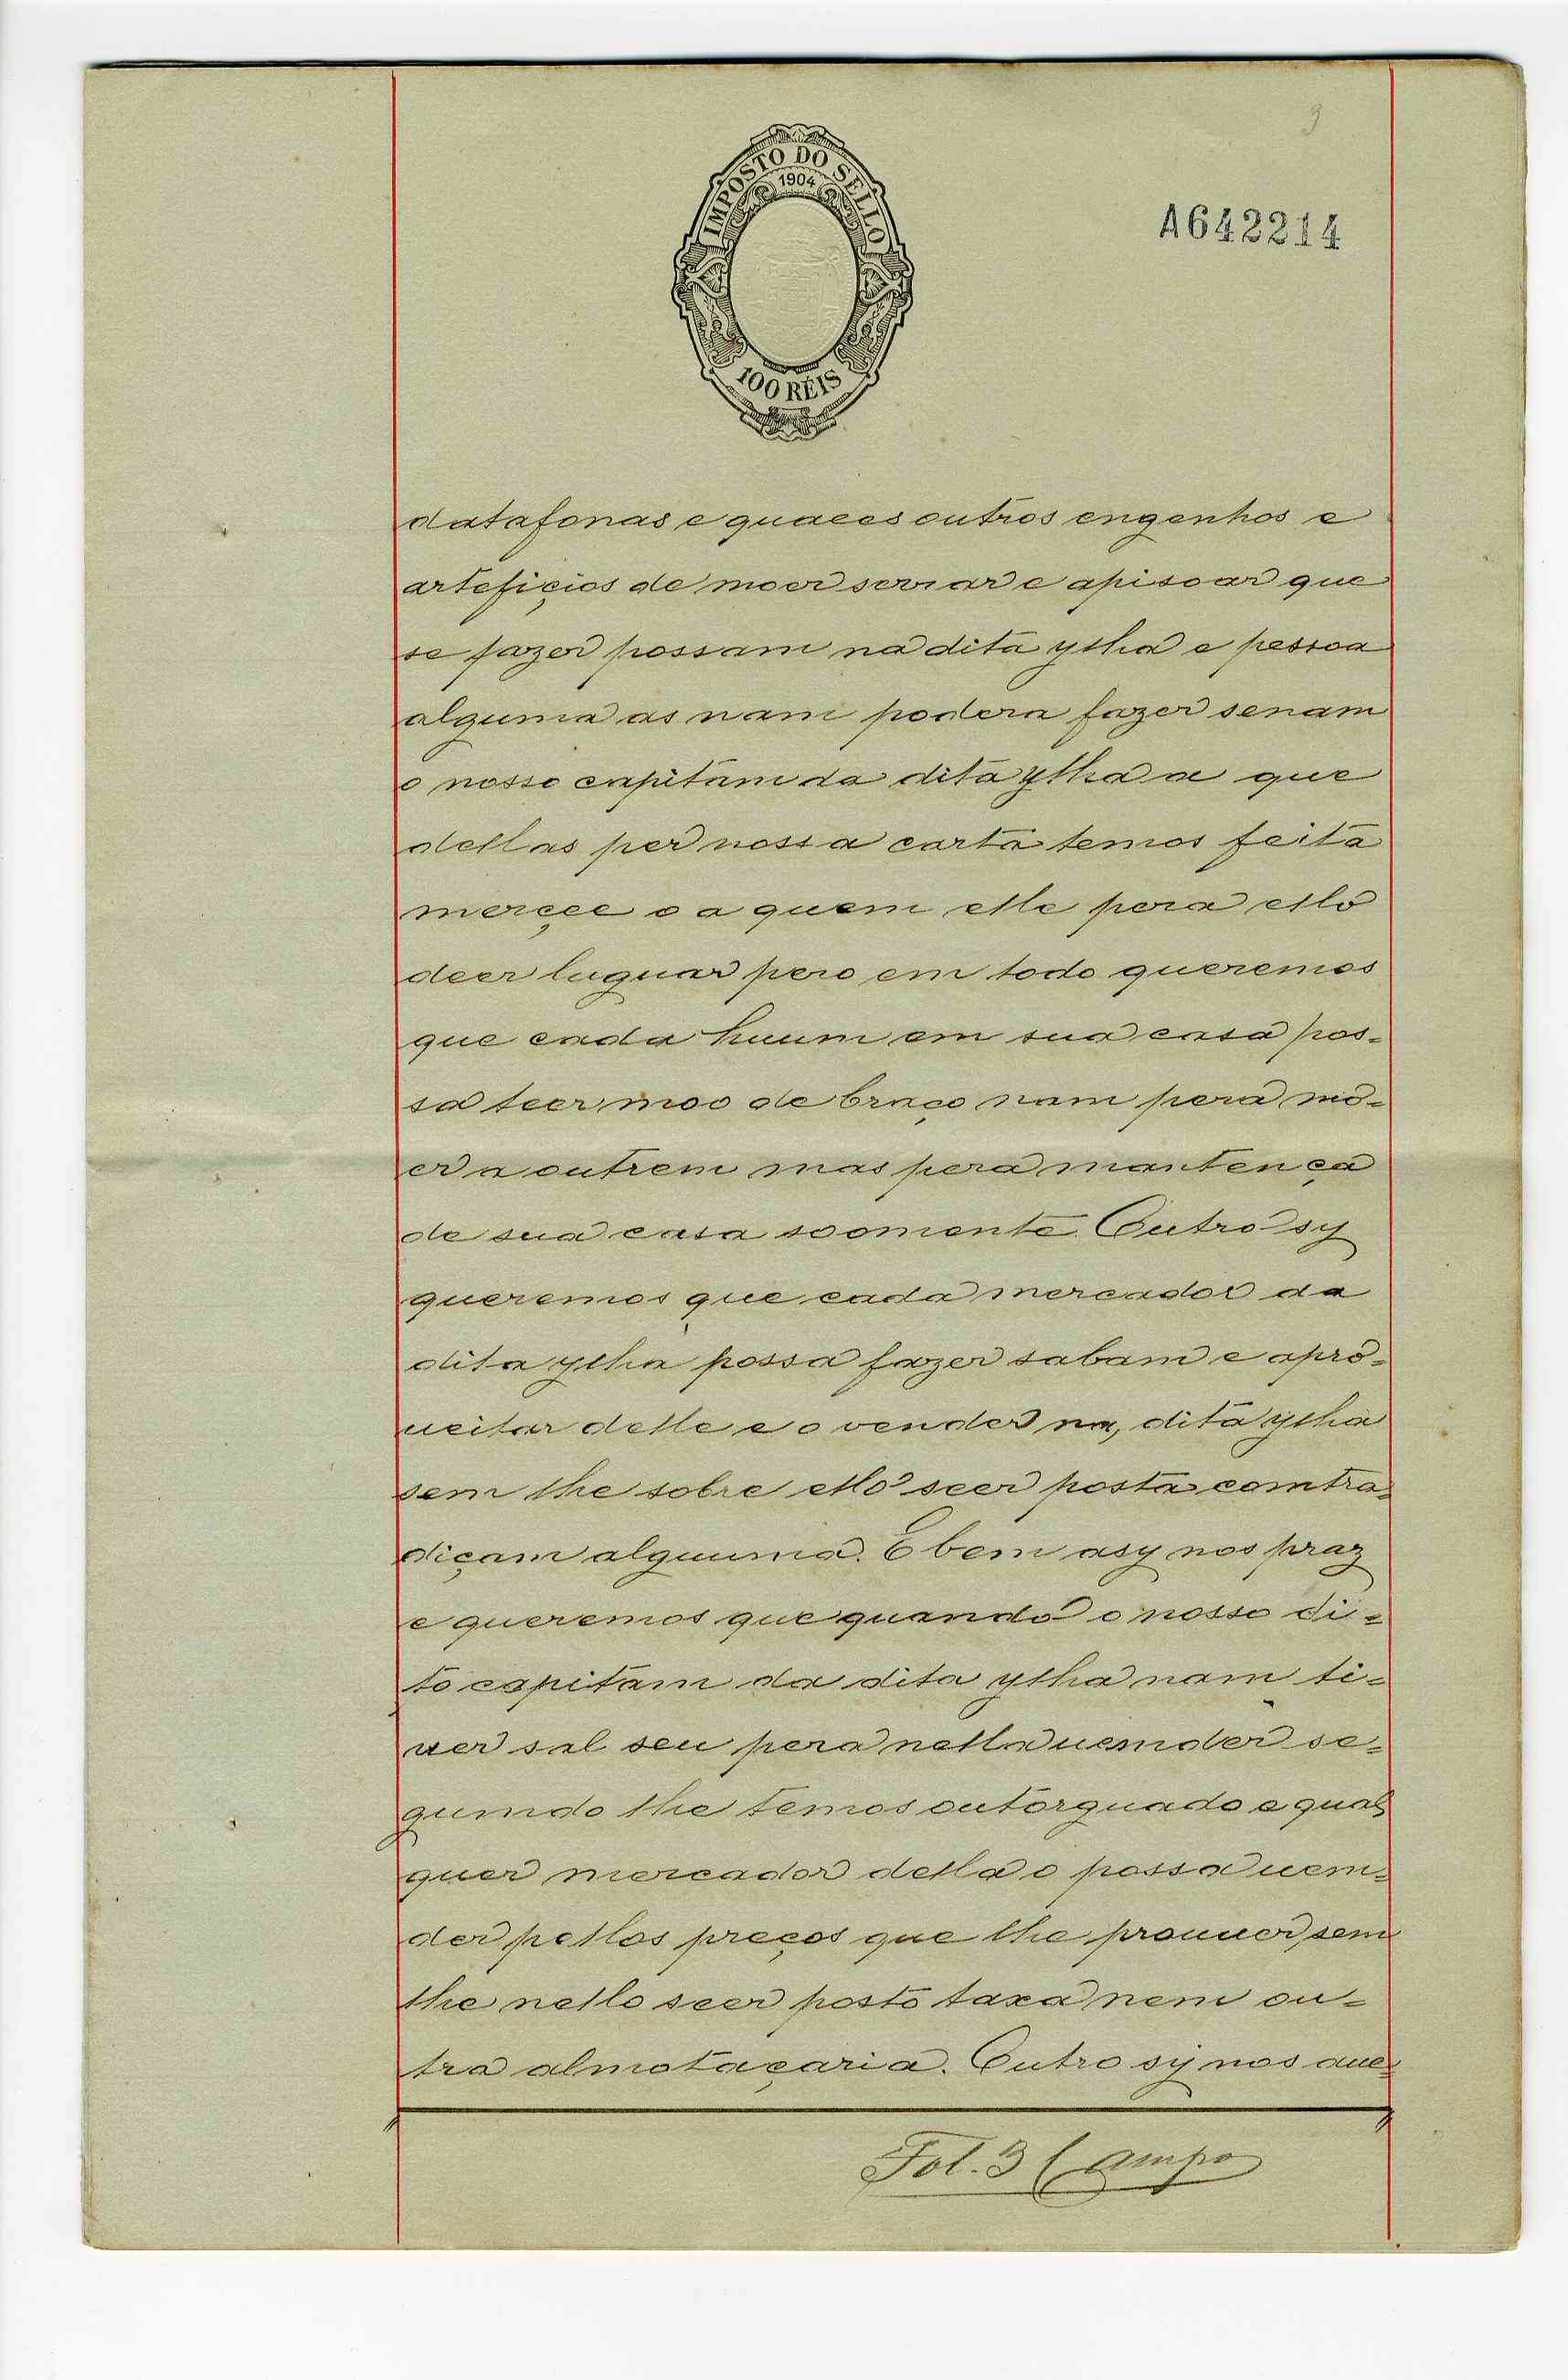 3
IMPOSTO DO SELLO
1904
100 RÉIS
A642214
datafonas e quaees outros engenhos e
artefiçios de moer serrar e apisoar que
se fazer possam na dita ylha e pessoa
alguma as nam podera fazer senam
o nosso capitam da dita ylha a que
dellas per nossa carta temos feita
merçee o a quem elle pera ello
deer luguar pero em todo queremos
que cada huum em sua casa pos-
sa teer moo de braço nam pera mo-
er a outrem mas pera mantença
de sua casa soomente. Outro sy
queremos que cada mercador da
dita ylha possa fazer sabam e apro-
ueitar delle e o vender na, dita ylha
sem lhe sobre ello seer posta comtra-
diçam alguuma. E bem asy nos praz
e queremos que quando o nosso di-
to capitam da dita ylha nam ti-
uer sal seu pera nella uemder se-
gumdo lhe temos outorguado a qual
quer mercador della o possa uem-
der pellos preços que lhe prouuer, sem
lhe nello seer posto taxa nem ou-
tra almotaçaria. Outro sy nos aue-
Fol. 3 Campos